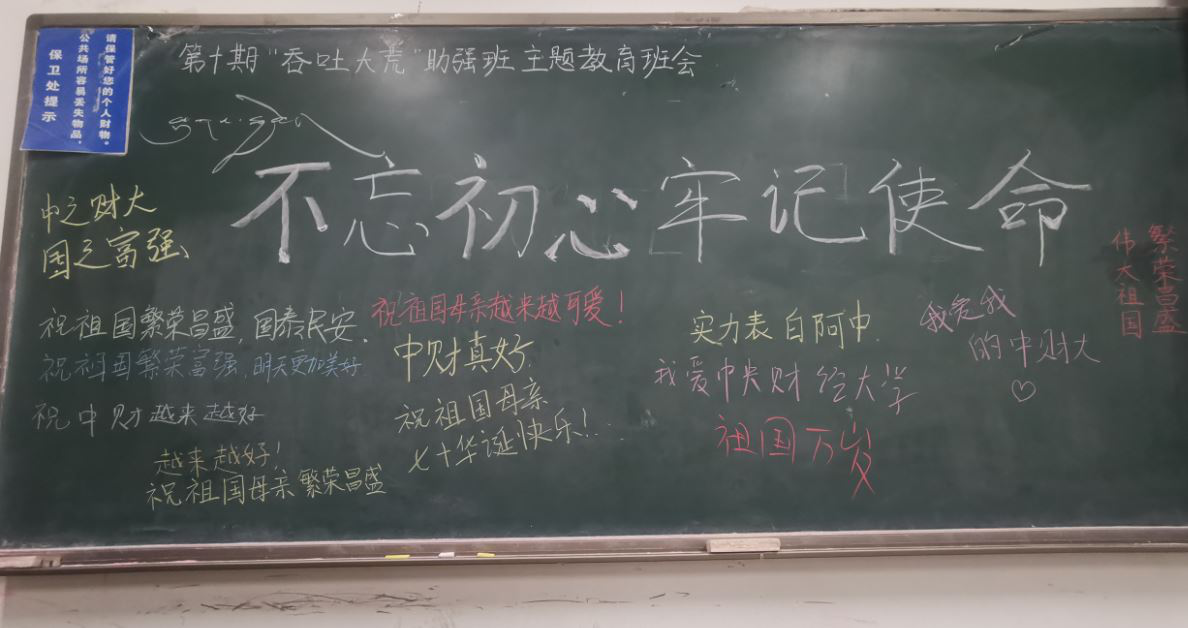 请保管好您的个人财物。
公共场所容易丢失物品，
保卫处提示
第十期“吞吐大荒”助强班主题教育班会
不忘初心牢记使命
中之财大
国之富强
祝祖国繁荣昌盛,国泰民安.
祝祖国繁荣富强,明天更加美好
祝中财越来越好
越来越好!
祝祖国母亲繁荣昌盛
祝祖国母亲越来越可爱!
中财真好.
祝祖国母亲
七十华诞快乐!
实力表白阿中.
我爱中央财经大学
祖国万岁
我爱我
的中财大
繁荣昌盛
伟大祖国